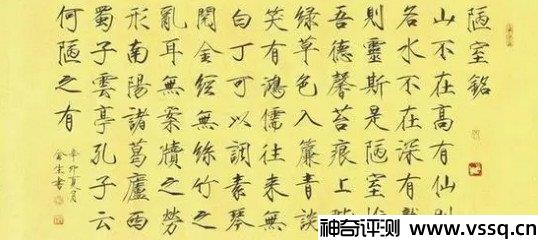 陋室銘
山不在高有仙則
名水不在深有龍
則靈斯是陋室惟
吾德馨苔痕上階
綠草色入簾青談
笑有鴻儒往来無
白丁可以調素琴
閱金經無絲竹之
亂耳無案牘之勞
形南陽諸葛廬西
蜀子雲亭孔子云
何陋之有
辛卯夏月
書
神奇评测
www.vssq.cn